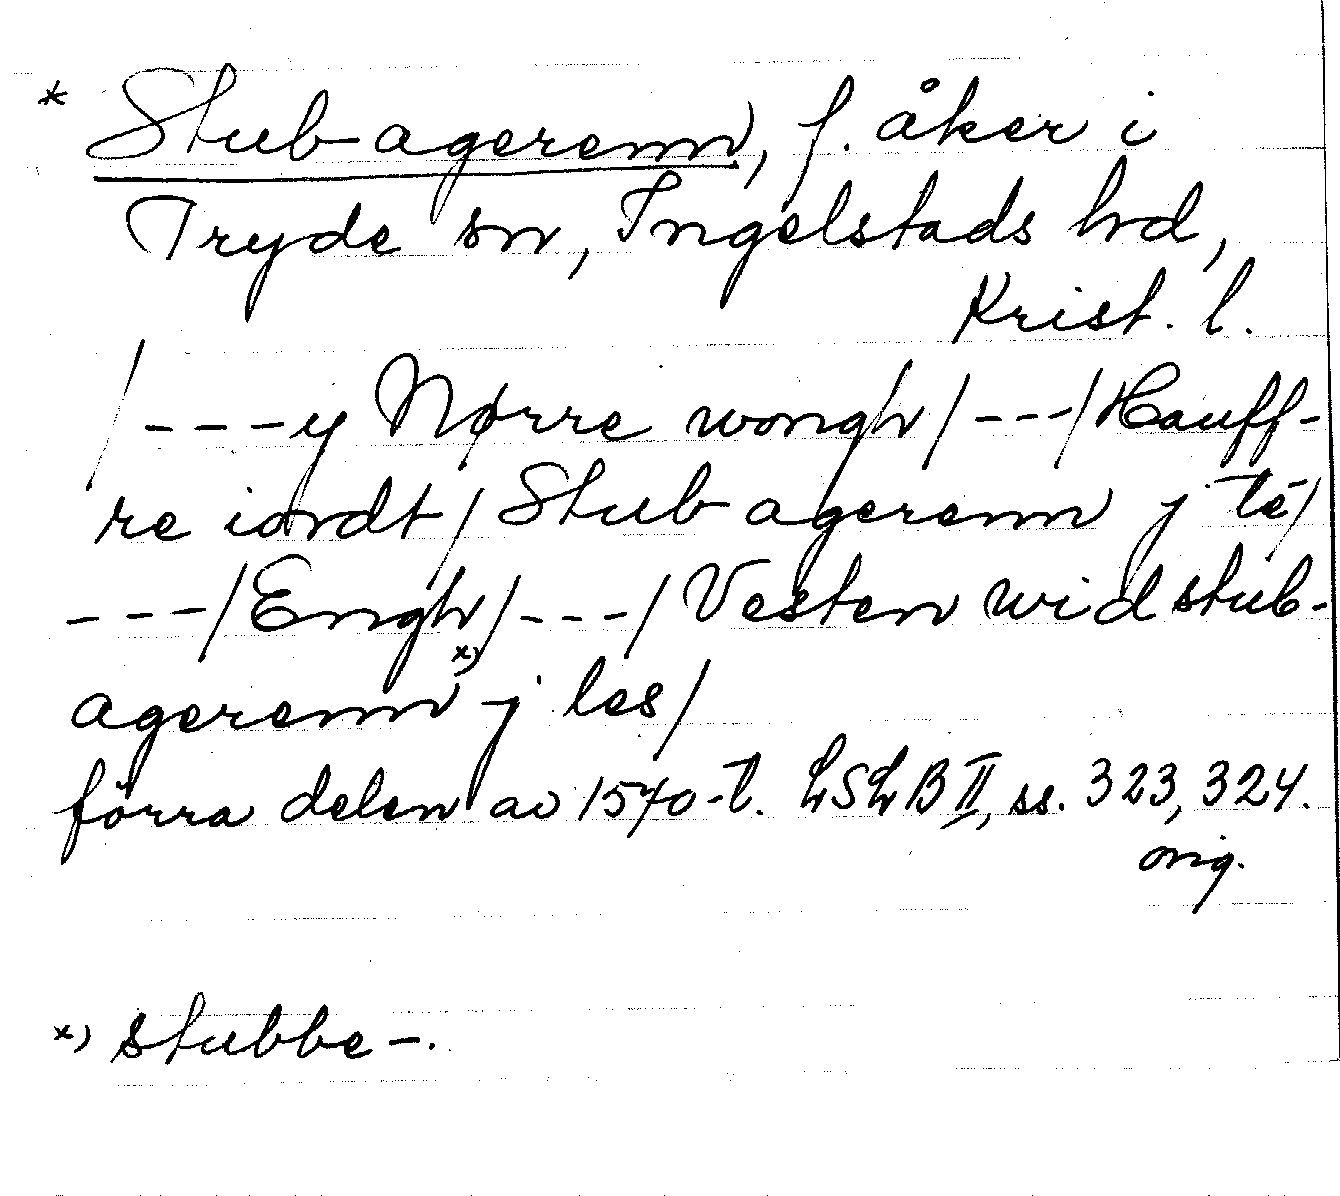 * Stub agerenn, f. åker i
Tryde sn, Ingelstads hd,
Krist. l.
/ - - - y Nørre wongh / - - - / Hauff-
re iordt / Stub agerenn j te /
- - - / Engh / - - - / Vesten wid stub-
agerenn x) j les /
förra delen av 1570-t. LSLB II, ss. 323, 324.
orig.
x) stubbe -.